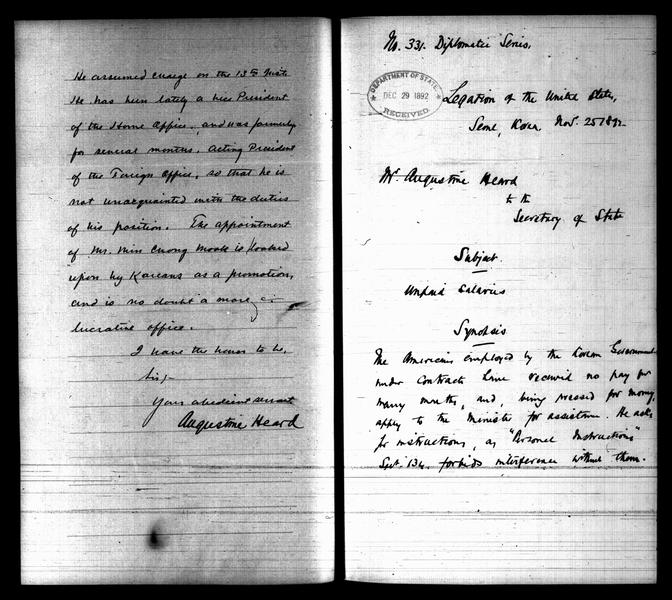 He assumed charge on the 13th Inst.
He has been lately a Vice President
of the Home Office, and was formerly
for several months, Acting President
of the Foreign Office, so that he is
not unacquainted with the duties
of his position. The appointment
of Mr. Min Chong Mook is looked
upon by Koreans as a promotion,
and is no doubt a more
lucrative office.
I have the honor to be,
Sir,
Your obedient servant
Augustine Heard
No. 331. Diplomatic Series.
DEPARTMENT OF STATE
DEC 29 1892
RECEIVED
Legation of the United States,
Seoul, Korea, Nov. 25 1892
Mr Augustine Heard
to the
Secretary of State
Subject.
Unpaid Salaries
Synopsis
The Americans employed by the Korean Government
under Contracts have received no pay for
many months, and, being pressed for money,
apply to the Minister for assistance. He asks
for instructions, as "Personal Instructions"
Sect. 134, forbids interference without them.